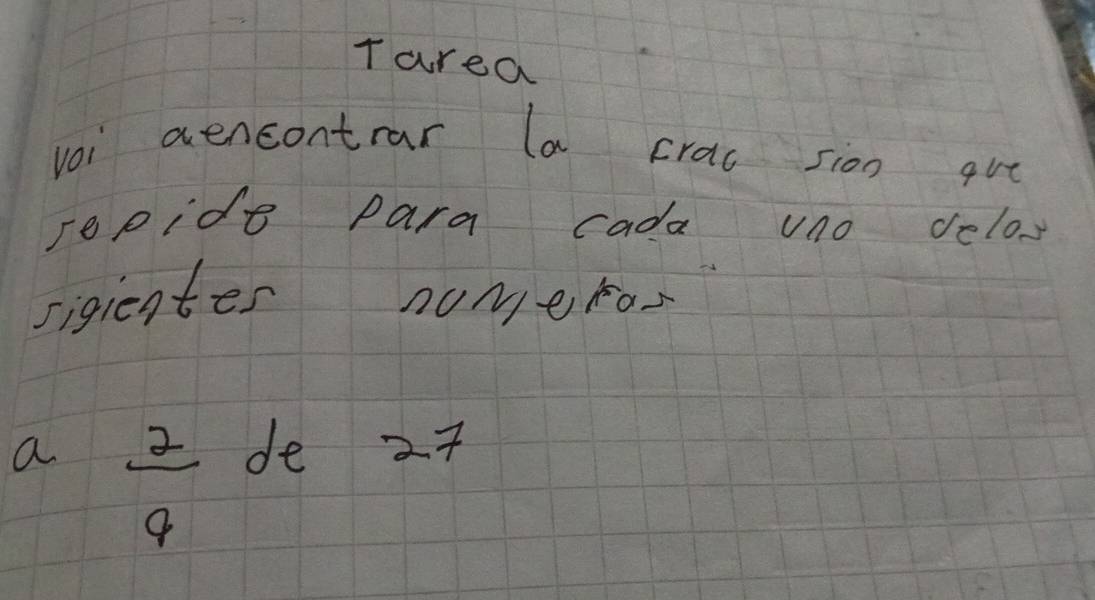 Tarea
voi aencontrar la frac sion que
sepide para cada uno delos
sigientes numeros
a 2/9 de 27